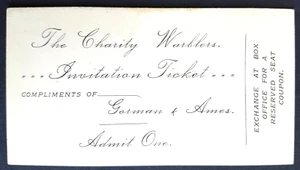 The Charity Warblers.
... Invitation Ticket ...
COMPLIMENTS OF
Gorman & Ames.
Admit One.
EXCHANGE AT BOX
OFFICE FOR A
RESERVED SEAT
COUPON.